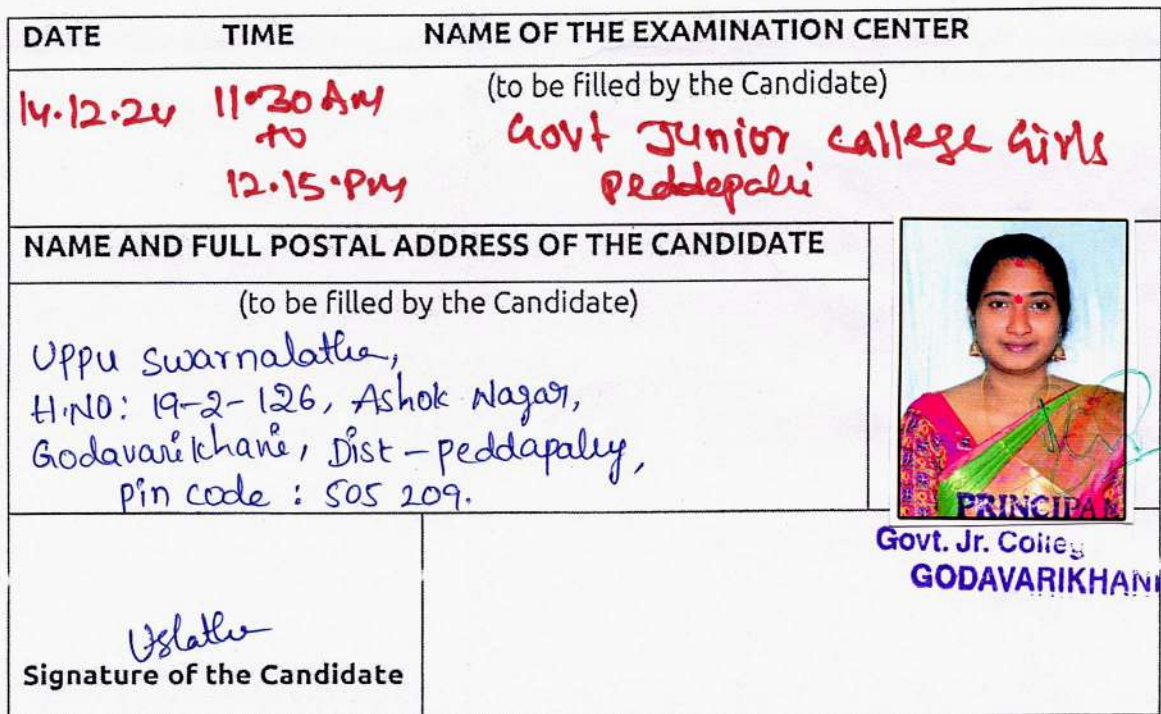 DATE TIME NAME OF THE EXAMINATION CENTER
(to be filled by the Candidate)
14.12.24 11.30 AM Govt Junior College Girls
to Peddepalli
12.15.PM
NAME AND FULL POSTAL ADDRESS OF THE CANDIDATE
(to be filled by the Candidate)
Uppu Swarnalatha,
H.NO: 19-2-126, Ashok Nagar,
Godavarikhani, Dist - peddapally,
Pin code : 505 209.
PRINCIPA
Govt. Jr. Colleg
GODAVARIKHANI
Uslatha
Signature of the Candidate